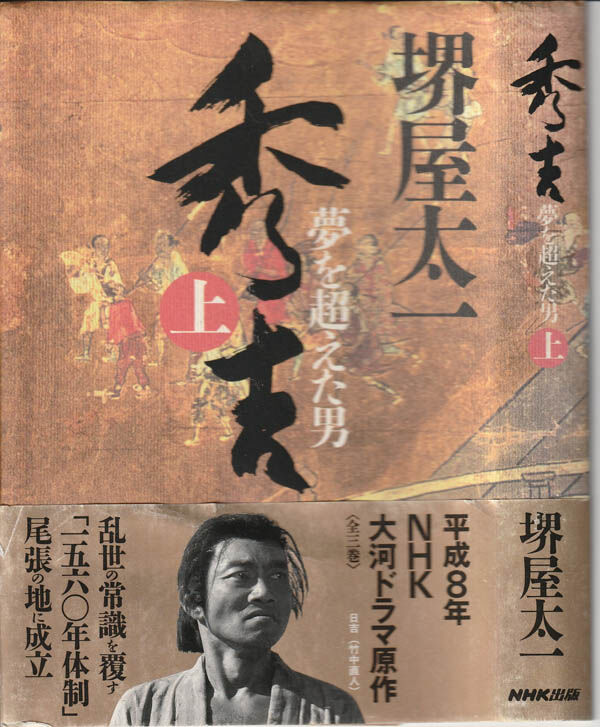 堺屋太一
秀吉
夢を超えた男
上
秀吉
夢を超えた男
上
平成8年
NHK
大河ドラマ原作
〈全三巻〉
日吉(竹中直人)
乱世の常識を覆す
「一五六〇年体制」
尾張の地に成立
堺屋太一
NHK出版